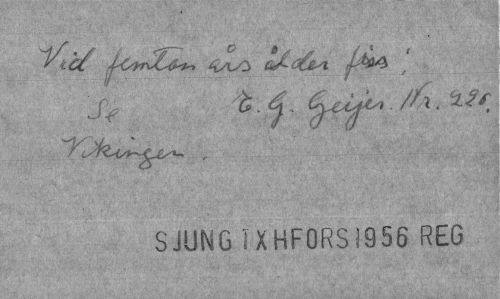 Vid femton års ålder fiss!
Se E. G. Geijer. Nr. 226.
Vikingen.
SJUNG IXHFORS1956 REG